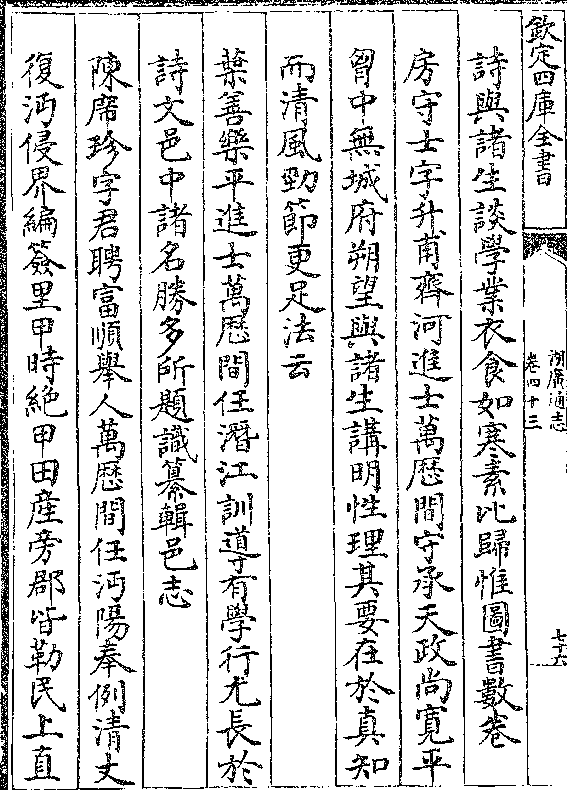 欽定四庫全書
湖廣通志
卷四十三
七十六
詩與諸生談學業衣食如寒素比歸惟圖書數卷
房守士字升甫齊河進士萬厯間守承天政尚寛平
胷中無城府朔望與諸生講明性理其要在於真知
而清風勁節更足法云
葉善樂平進士萬厯間任潛江訓導有學行尤長於
詩文邑中諸名勝多所題識纂輯邑志
陳席珍字君聘富順舉人萬厯間任沔陽奉例清丈
復沔侵界編簽里甲時絶甲田産旁郡皆勒民上直